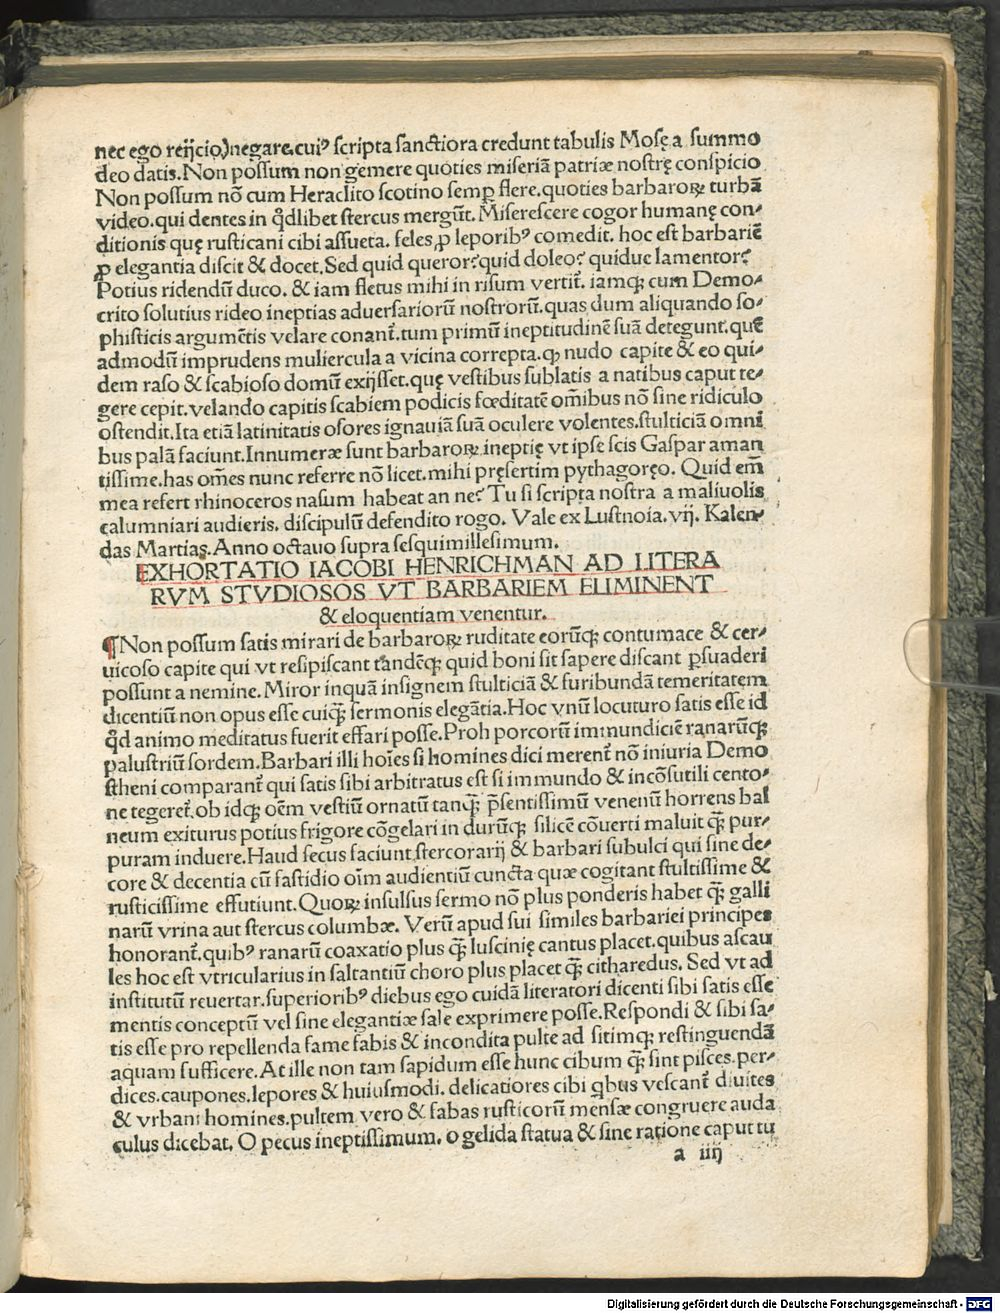 nec ego reijcio)negare.cuiꝰ scripta sanctiora credunt tabulis Mosę a summo
deo datis.Non possum non gemere quoties miseriā patriæ nostrę conspicio
Non possum nō cum Heraclito scotino semꝑ flere.quoties barbaroꝝ turbā
video.qui dentes in qđlibet stercus mergūt. Miserescere cogor humanę con-
ditionis quę rusticani cibi assueta. feles ꝓ leporibꝰ comedit. hoc est barbariē
ꝓ elegantia discit & docet.Sed quid queror?quid doleo? quidue lamentor?
Potius ridendū duco. & iam fletus mihi in risum vertit̄. iamqꝫ cum Demo-
crito solutius rideo ineptias aduersariorū nostrorū.quas dum aliquando so-
phisticis argumētis velare conant̄.tum primū ineptitudinē suā detegunt.quē
admodū imprudens muliercula a vicina correpta.ꝙ nudo capite & eo qui-
dem raso & scabioso domū exijsset.quę vestibus sublatis a natibus caput te-
gere cepit.velando capitis scabiem podicis fœditatē om̄ibus nō sine ridiculo
ostendit.Ita etiā latinitatis osores ignauiā suā oculere volentes.stulticiā omni
bus palā faciunt.Innumeræ sunt barbaroꝝ ineptię vt ipse scis Gaspar aman
tissime.has om̄es nunc referre nō licet.mihi pręsertim pythagoręo. Quid em̄
mea refert rhinoceros nasum habeat an ne? Tu si scripta nostra a maliuolis
calumniari audieris. discipulū defendito rogo. Vale ex Lustnoia.vij. Kalen-
das Martias.Anno octauo supra sesquimillesimum.
EXHORTATIO IACOBI HENRICHMAN AD LITERA
RVM STVDIOSOS VT BARBARIEM ELIMINENT
& eloquentiam venentur.
¶Non possum satis mirari de barbaroꝝ ruditate eorūqꝫ contumace & cer-
uicoso capite qui vt resipiscant tandēqꝫ quid boni sit sapere discant ꝑsuaderi
possunt a nemine. Miror inquā insignem stulticiā & furibundā temeritatem
dicentiū non opus esse cuiqꝫ̄ sermonis elegātia.Hoc vnū locuturo satis esse id
qđ animo meditatus fuerit effari posse.Proh porcorū immundiciē ranarūqꝫ
palustriū sordem.Barbari illi hoīes si homines dici merent̄ nō iniuria Demo
stheni comparant̄ qui satis sibi arbitratus est si immundo & incōsutili cento-
ne tegeret̄.ob idqꝫ oēm vestiū ornatū tanqꝫ̄ p̄sentissimū venenū horrens bal
neum exiturus potius frigore cōgelari in durūqꝫ silicē cōuerti maluit qꝫ̄ pur-
puram induere.Haud secus faciunt stercorarij & barbari subulci qui sine de-
core & decentia cū fastidio oīm audientiū cuncta quæ cogitant stultissime &
rusticissime effutiunt.Quoꝝ insulsus sermo nō plus ponderis habet qꝫ̄ galli
narū vrina aut stercus columbæ. Verū apud sui similes barbariei principes
honorant̄.quibꝰ ranarū coaxatio plus qꝫ̄ luscinię cantus placet.quibus ascau
les hoc est vtricularius in saltantiū choro plus placet qꝫ̄ citharedus. Sed vt ad
institutū reuertar.superioribꝰ diebus ego cuidā literatori dicenti sibi satis esse
mentis conceptū vel sine elegantiæ sale exprimere posse.Respondi & sibi sa-
tis esse pro repellenda fame fabis & incondita pulte ad sitimqꝫ restinguendā
aquam sufficere.At ille non tam sapidum esse hunc cibum qꝫ̄ sint pisces.per-
dices.caupones.lepores & huiusmodi. delicatiores cibi qͥbus vescant̄ diuites
& vrbani homines.pultem vero & fabas rusticorū mensæ congruere auda
culus dicebat. O pecus ineptissimum. o gelida statua & sine ratione caput tu
a iiij
Digitalisierung gefördert durch die Deutsche Forschungsgemeinschaft - DFG